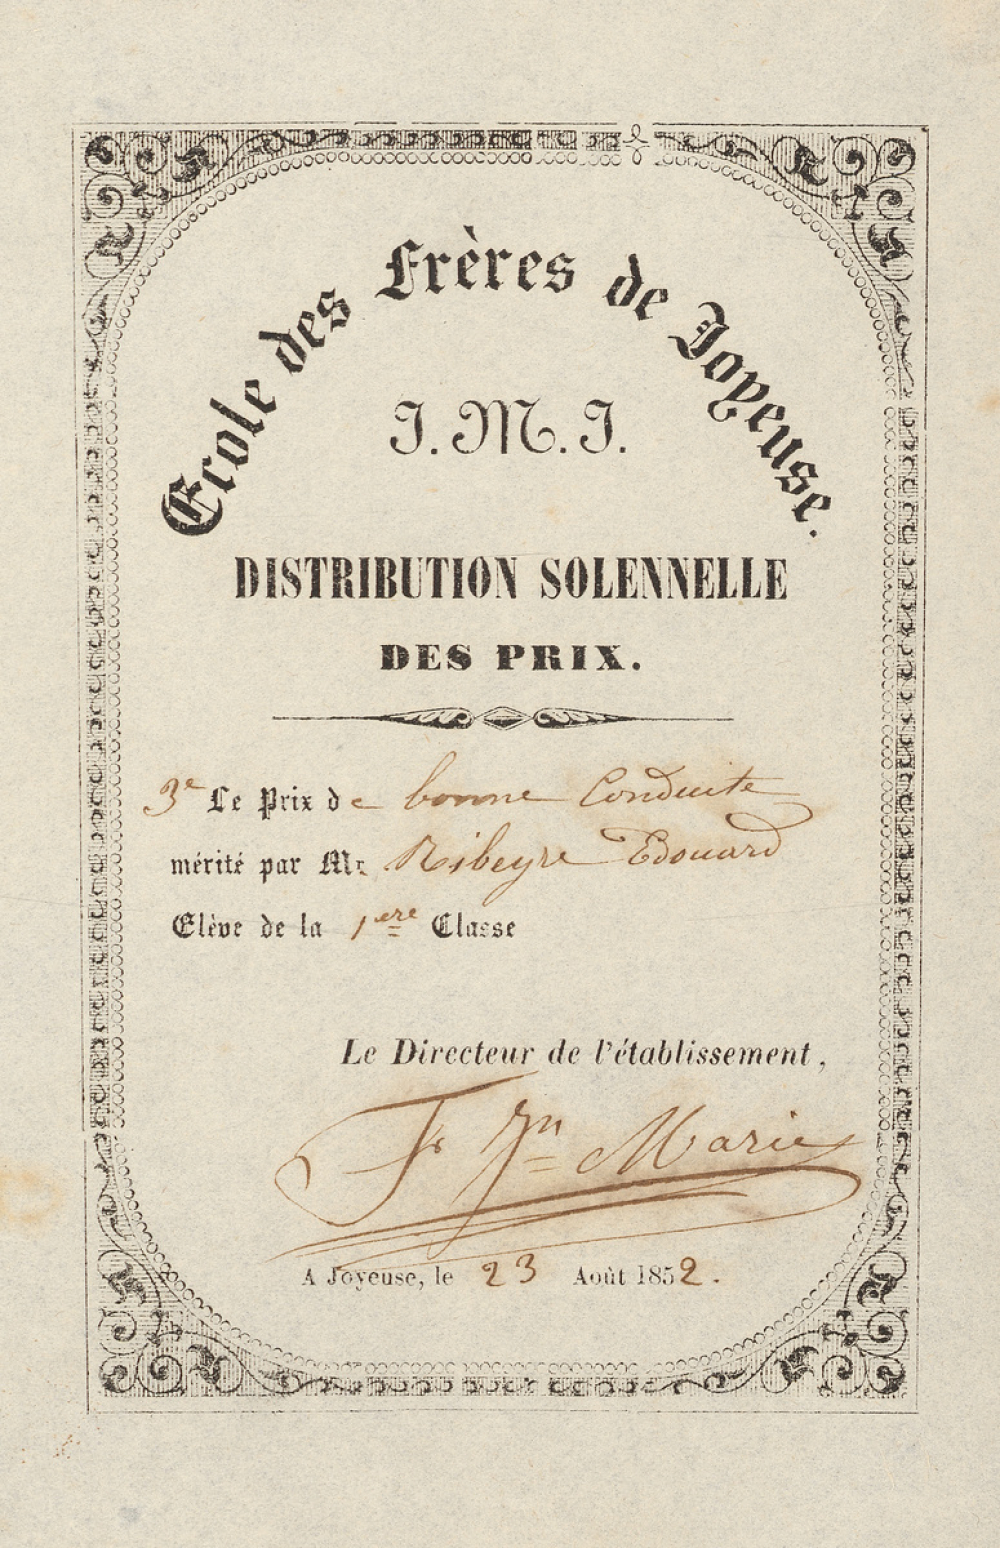 Ecole des Frères de Joyeuse.
J. M. J.
DISTRIBUTION SOLENNELLE
DES PRIX.
3e Le Prix de bonne Conduite
mérité par Mr Ribeyre Edouard
Elève de la 1ere Classe
Le Directeur de l'établissement,
F. Jn Marie
A Joyeuse, le 23 Août 1852.